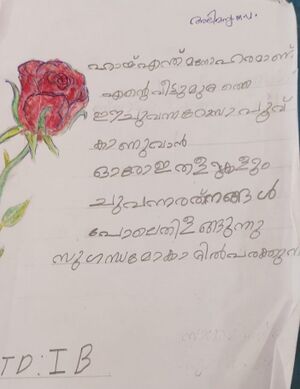 ഹായ് എന്ത് മനോഹരമാണ്.
എന്റെ വീട്ടുമുറ്റത്തെ
ഈ ചുവന്ന റോസാപ്പൂവ്
കാണുവാൻ
ഓരോ ഇതളുകളും
ചുവന്നരത്നങ്ങൾ
പോലെ തിളങ്ങുന്നു
സുഗന്ധമോ കാറ്റിൽ
TD: I B